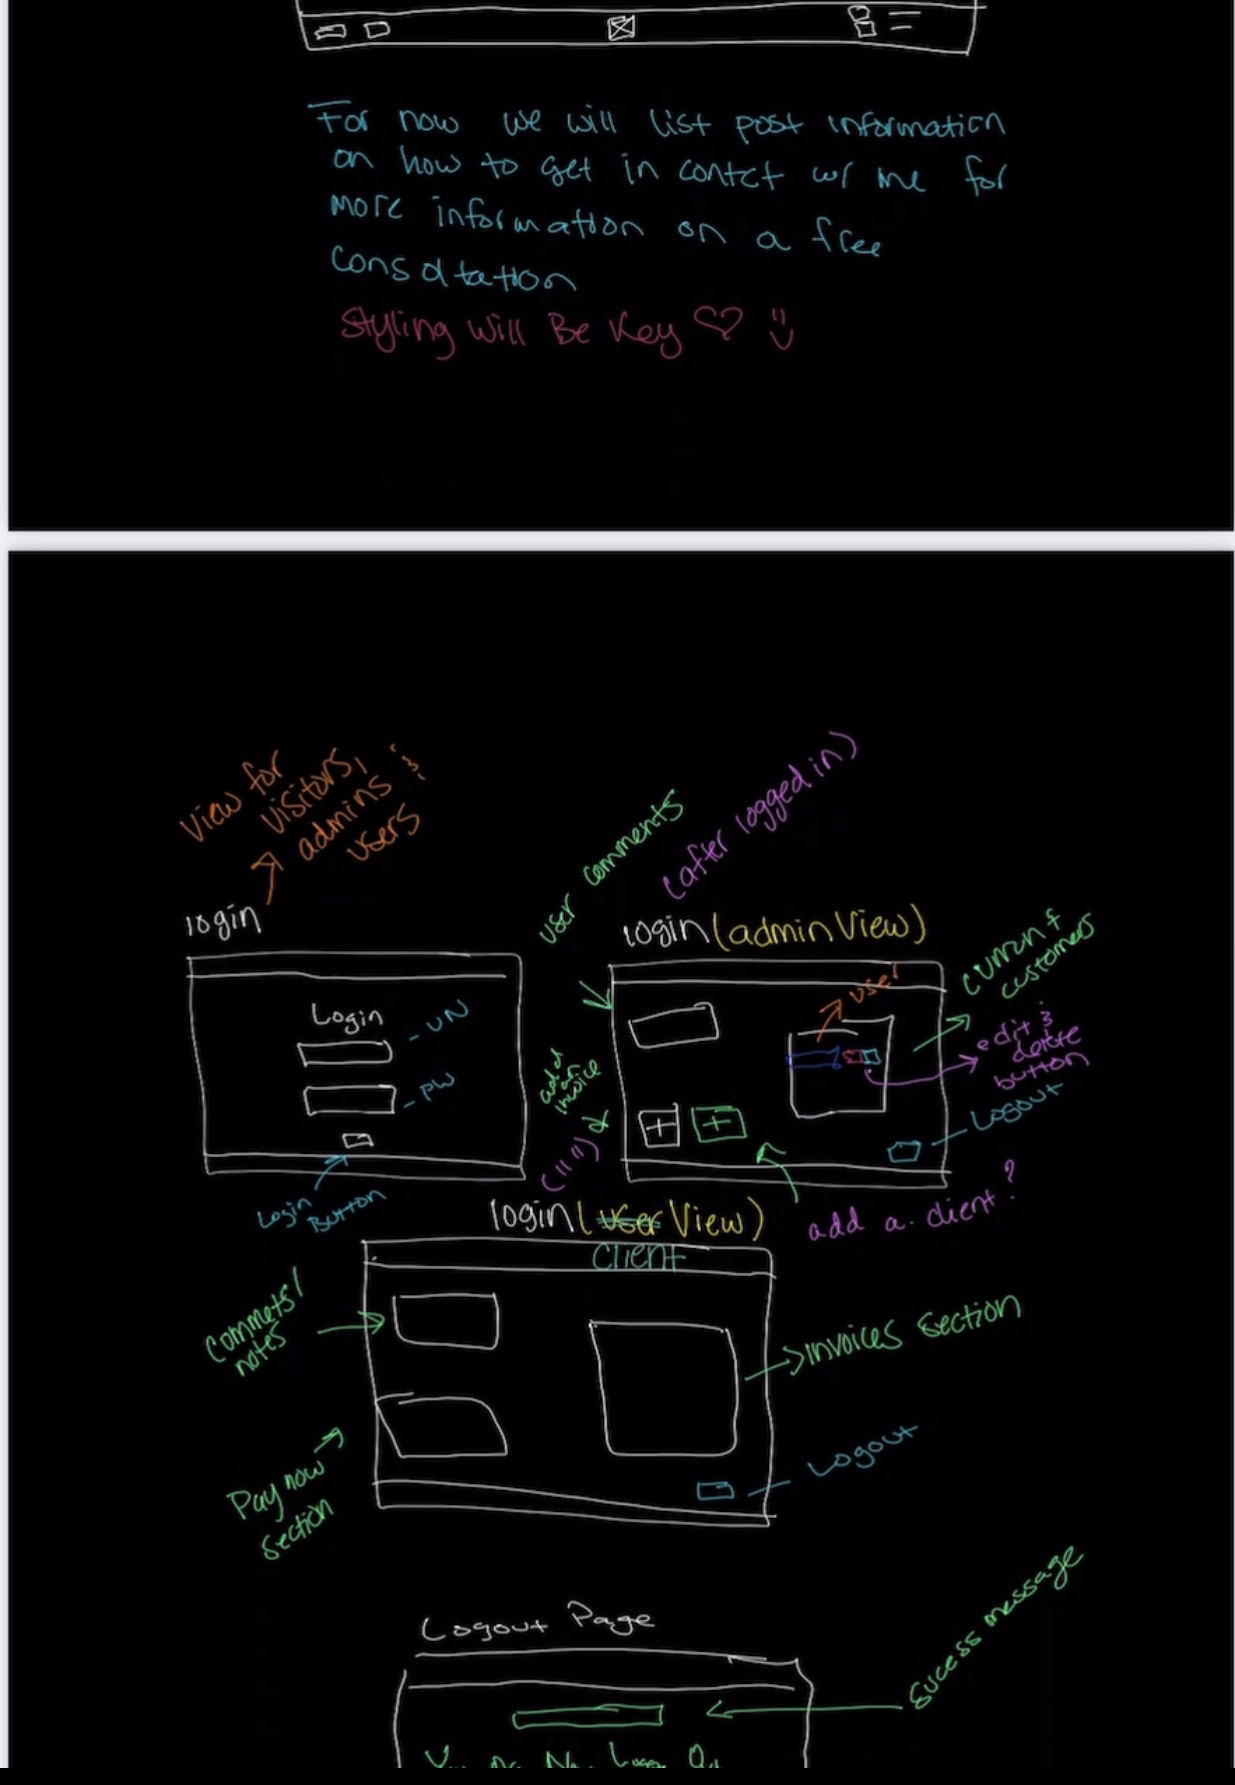 For now we will list post information
on how to get in contct w/ me for
more information on a free
consoltation
Styling Will Be Key ♡
View for
visitors,
admins &
users
login
Login
- UN
- PW
Login
Button
user comments
(after logged in)
login (admin View)
user
current
customers
edit &
delete
button
Logout
add
an
invoice
add a client?
(" ")
login (user View)
client
Commets/
notes
invoices section
Pay now
section
Logout
Logout Page
Sucess message